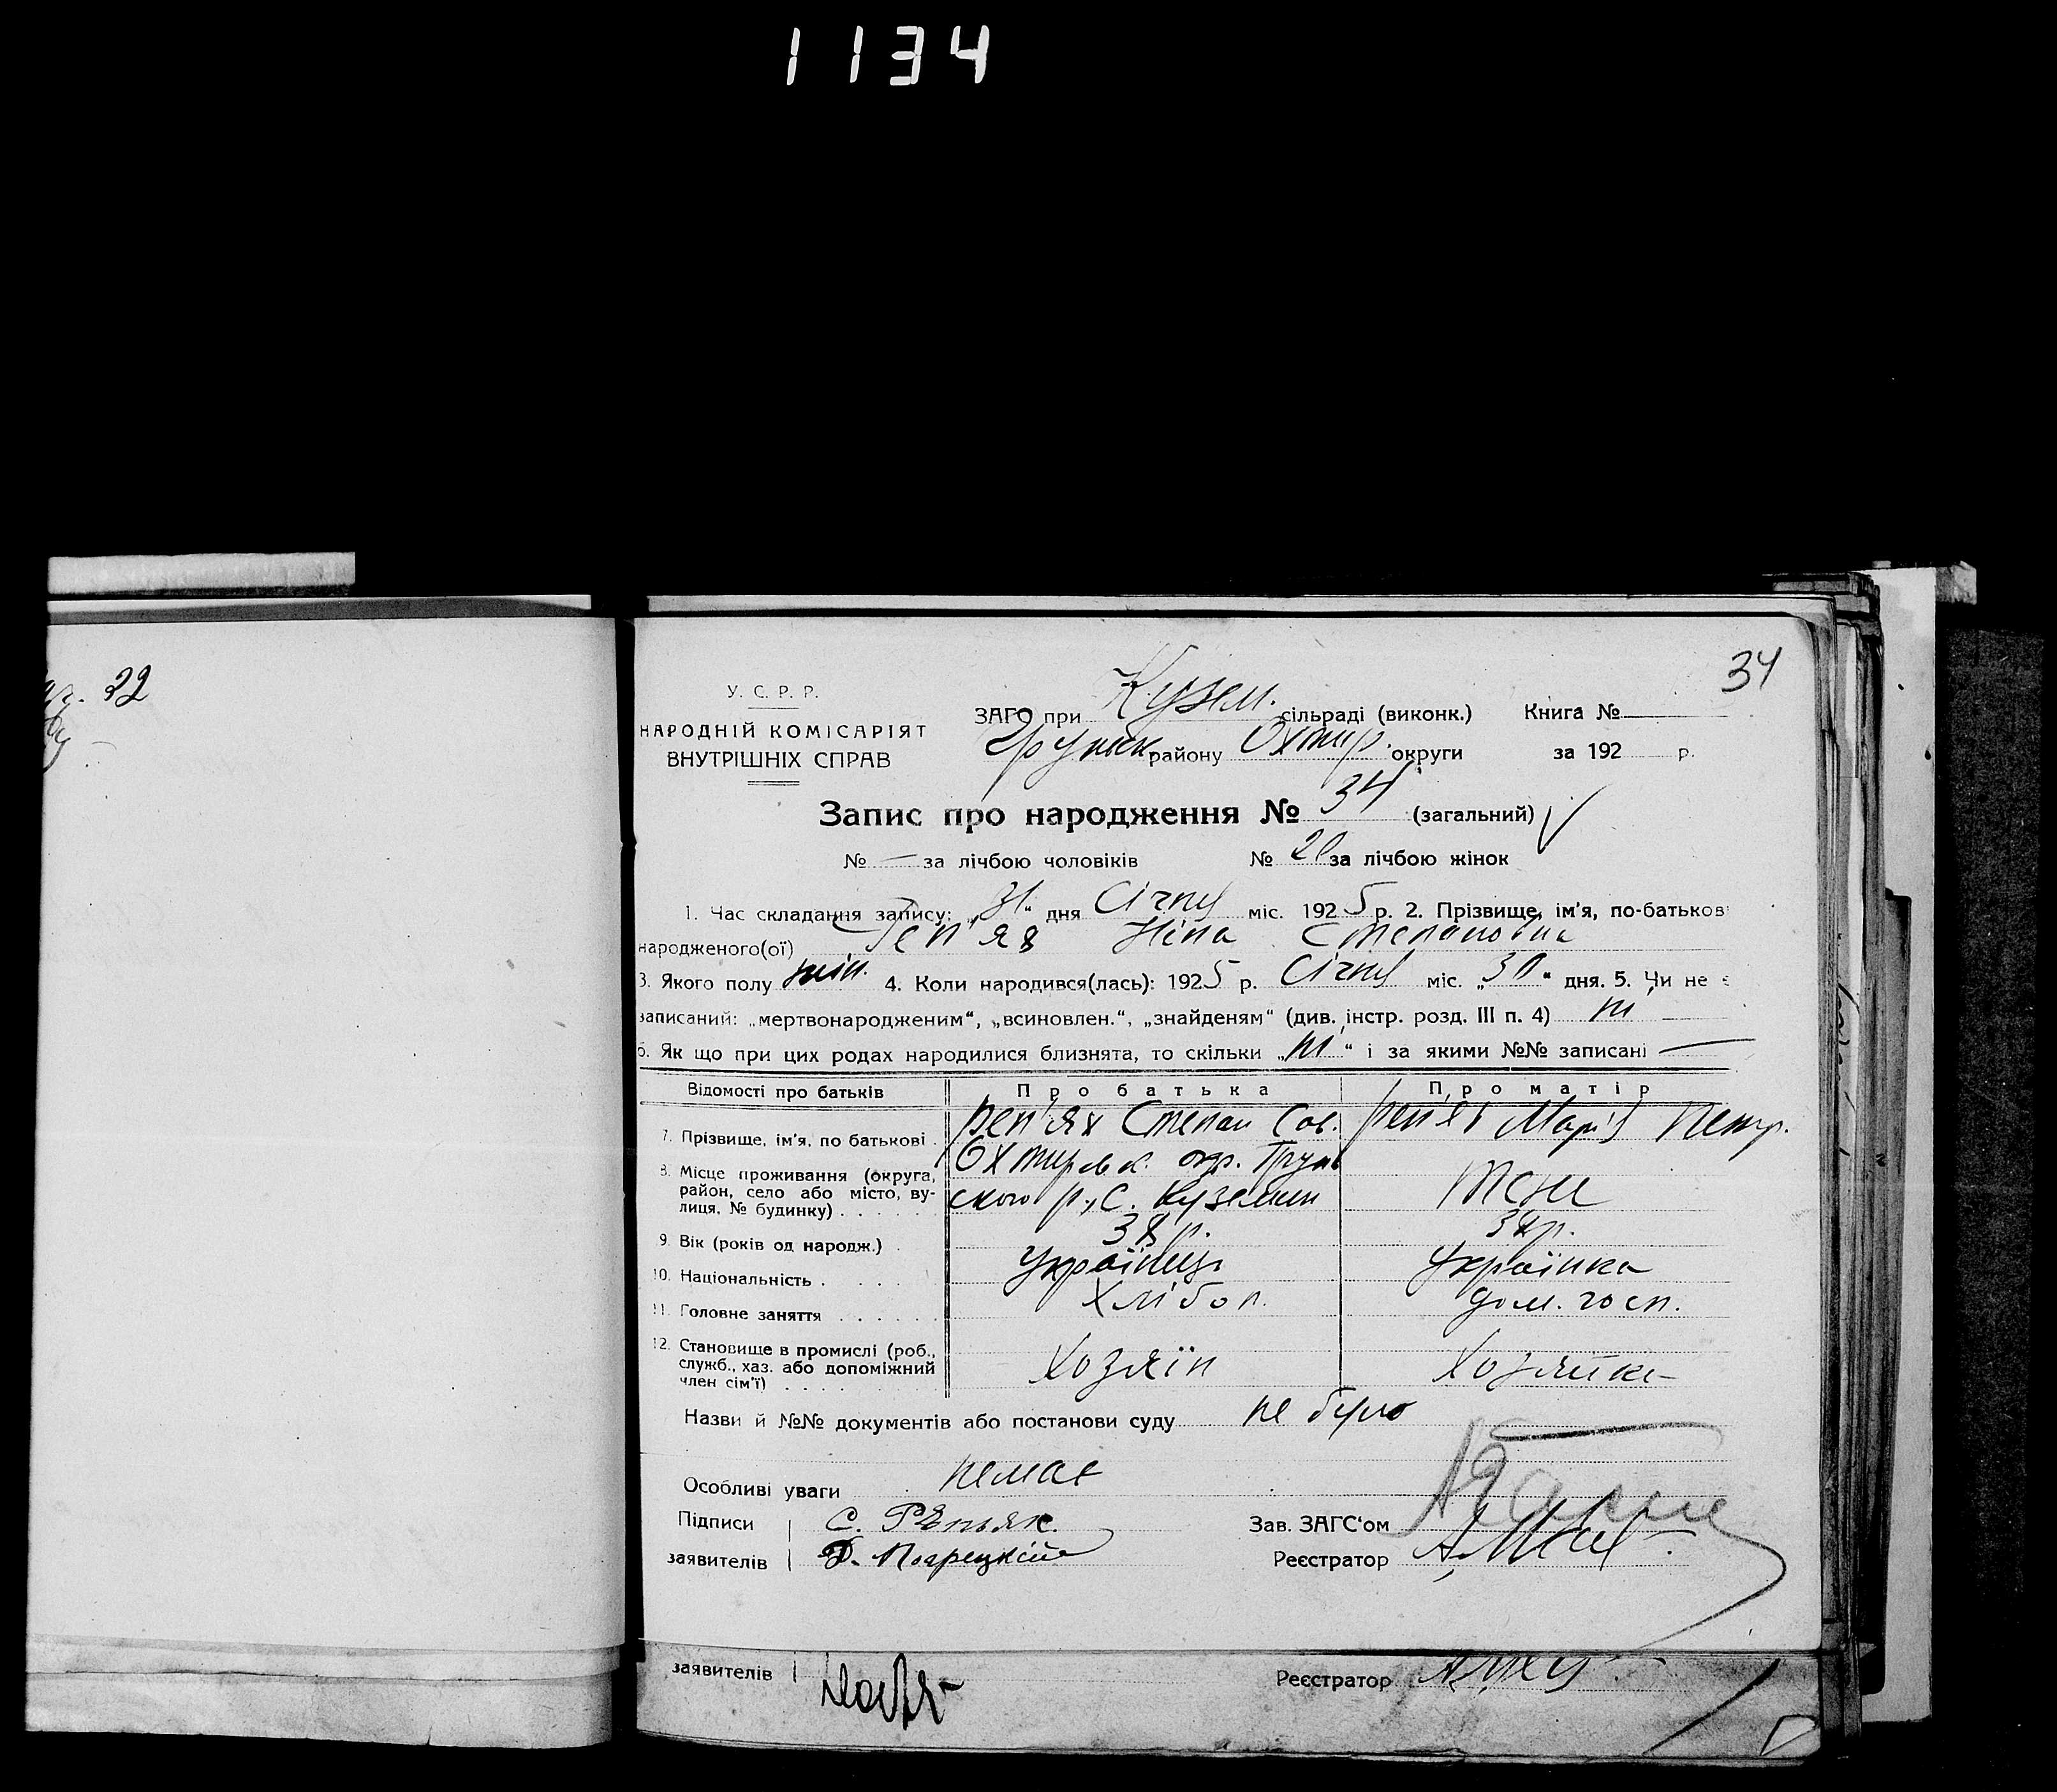 1134
22
34
У. С. Р. Р.
НАРОДНІЙ КОМІСАРІЯТ
ВНУТРІШНІХ СПРАВ
ЗАГС при Кузем. сільраді (виконк.) Книга №
Грунськ району Охтир. округи за 192 р.
Запис про народження № 34 (загальний)
№ — за лічбою чоловіків № 20 за лічбою жінок
1. Час складання запису: „31“ дня Січня міс. 1925 р. 2. Прізвище, ім'я, по-батькові
народженого(ої) Реп'ях Ніна Степановна
3. Якого полу жін. 4. Коли народився(лась): 1925 р. Січня міс. „30“ дня. 5. Чи не є
записаний: „мертвонародженим“, „всиновлен.“, „знайденям“ (див. інстр. розд. III п. 4) ні
6. Як що при цих родах народилися близнята, то скільки „ні“ і за якими №№ записані —
Відомості про батьків Про батька Про матір
7. Прізвище, ім'я, по батькові . Реп'ях Степан Сав. Реп'ях Марія Петр.
8. Місце проживання (округа, район, село або місто, вулиця, № будинку) . . . . . Охтирськ. окр. Грунського р., с. Куземин Теж
9. Вік (років од народж.) . 38 р. р.
10. Національність . . . . . Українець Українка
11. Головне заняття . . . . . . Хлібор. дом. госп.
12. Становище в промислі (роб., служб., хаз. або допоміжний член сім'ї) . . . . Хозяїн Хозяйка
Назви й №№ документів або постанови суду не було
Особливі уваги немає
Підписи С. Рѣпьяк. Зав. ЗАГС'ом
заявителів Реєстратор
заявителів Реєстратор